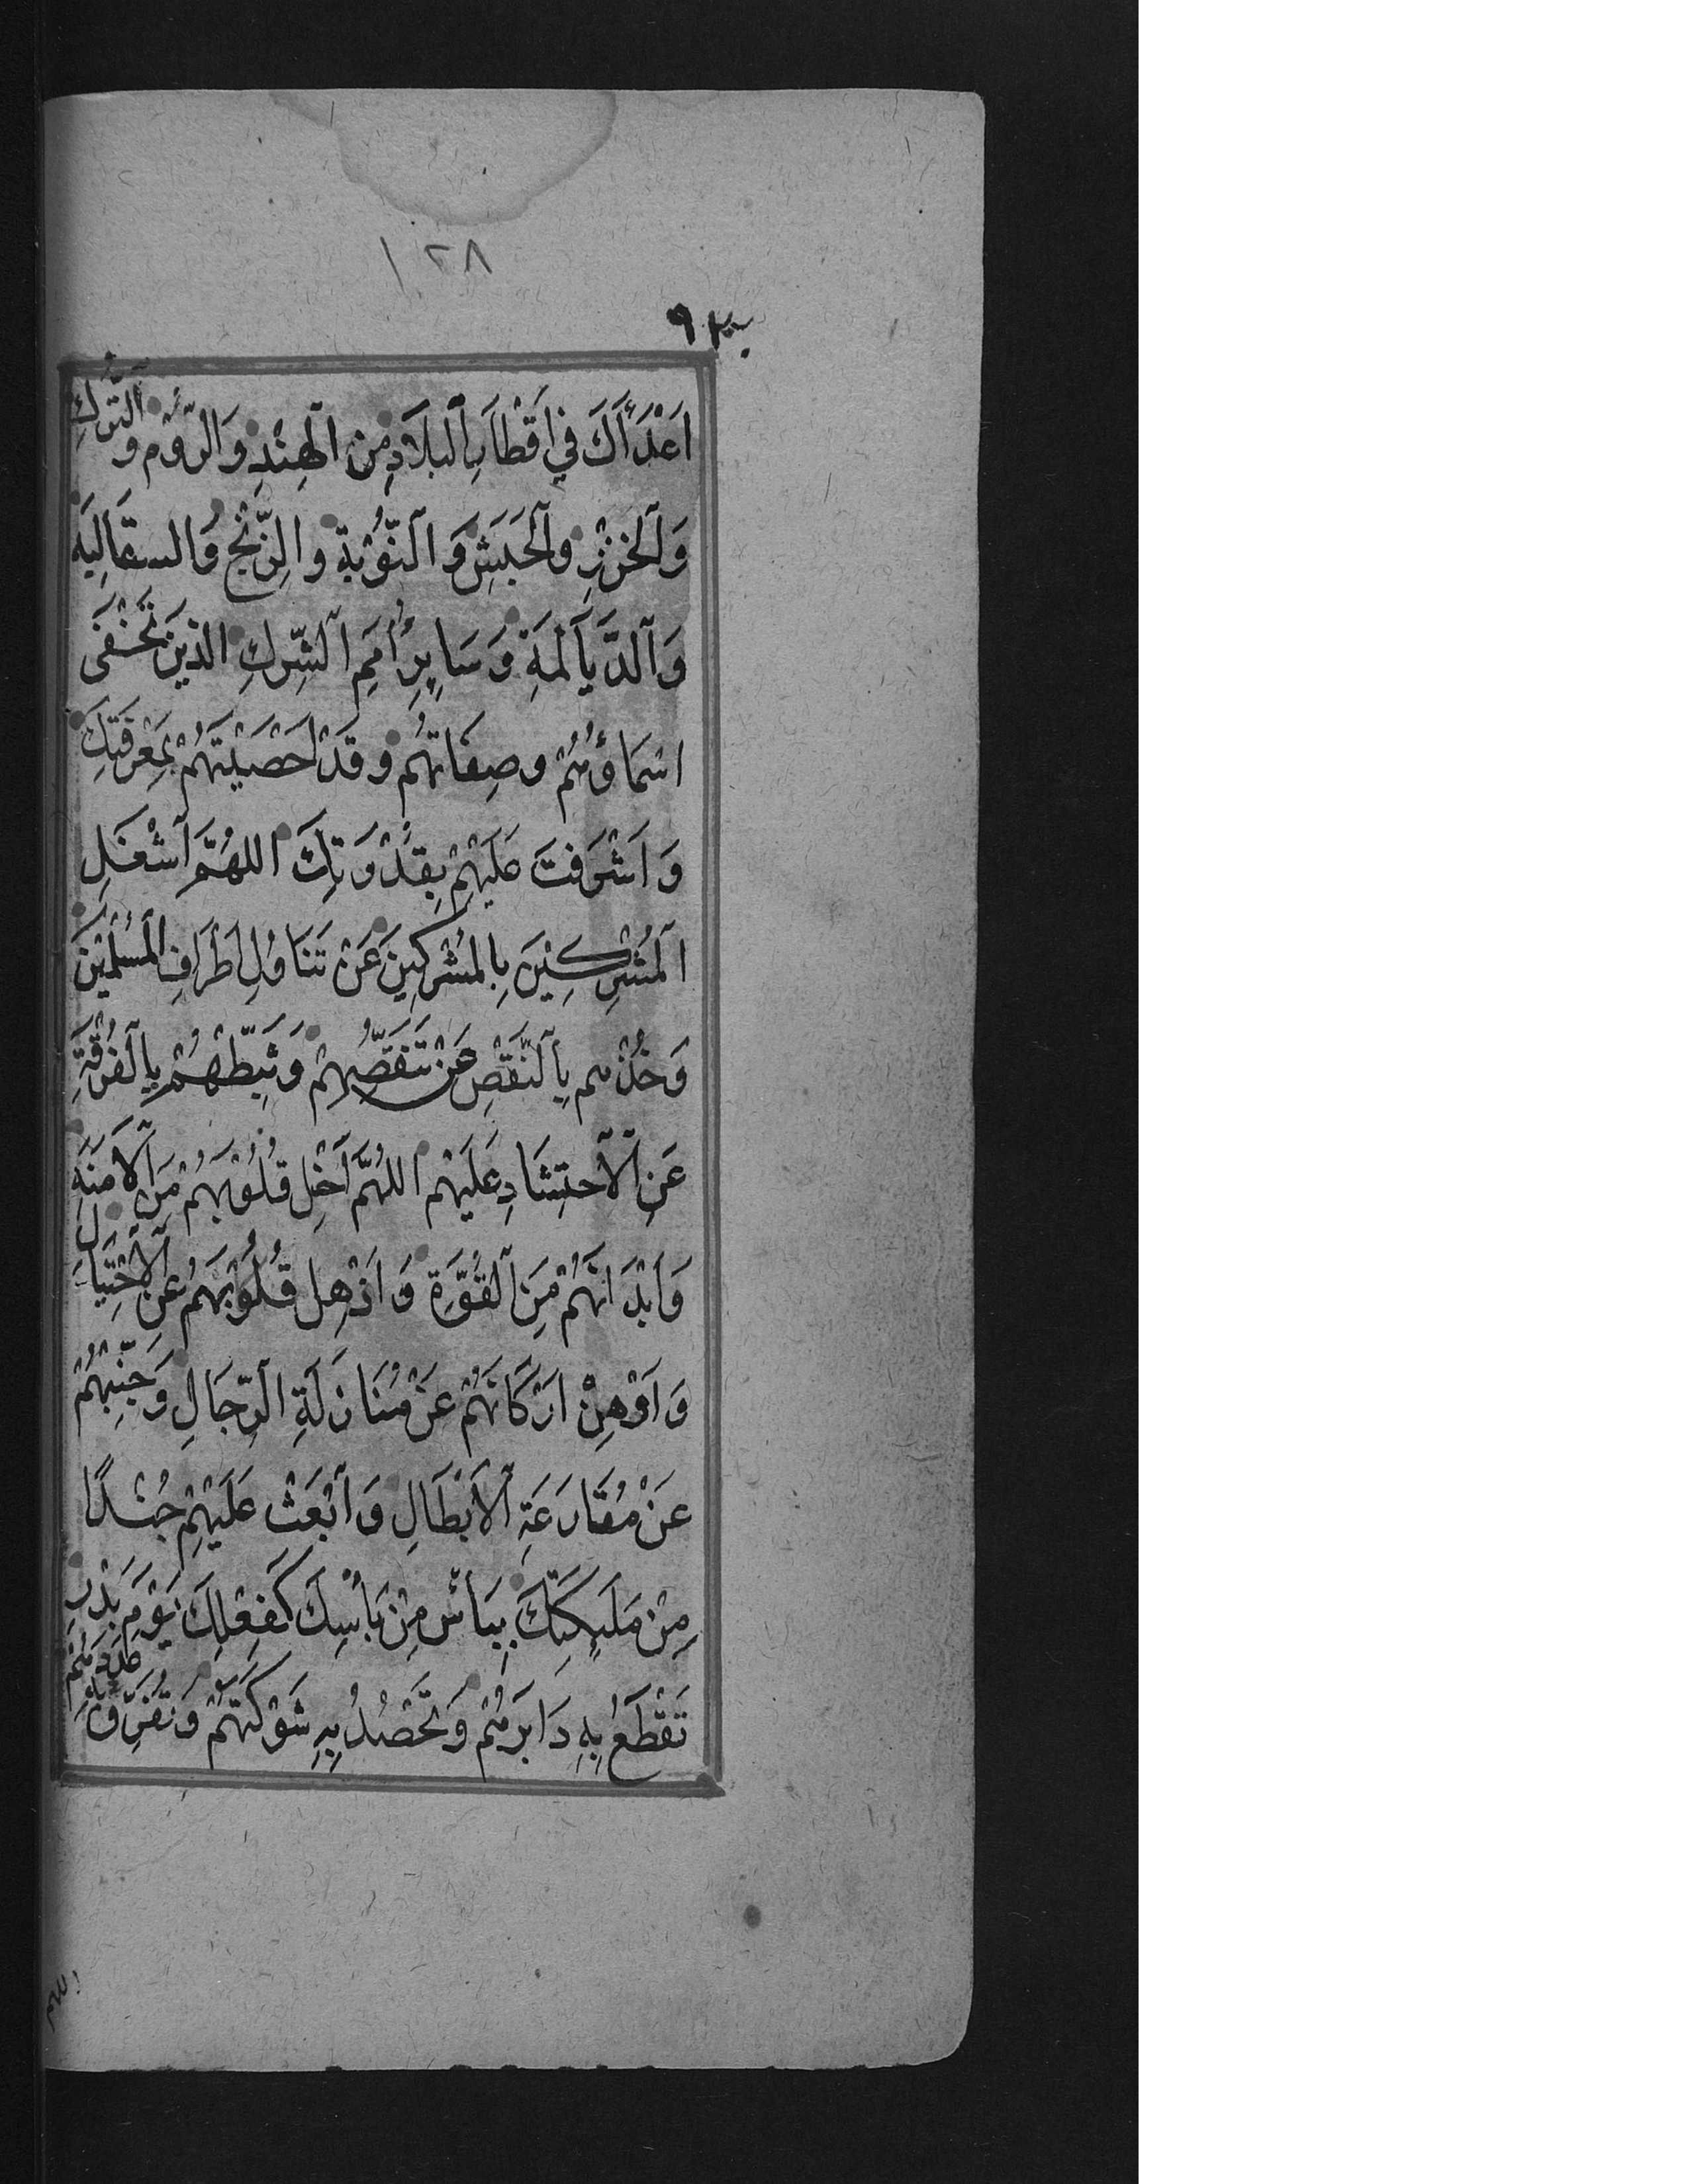 ١٢٨
اَعْدَآءَكَ فِي اَقْطَارِ اَلْبِلَادِ مِنَ الْهِنْدِ وَالرُّوْمِ وَ اَلتُّرْكِ
وَاَلْخَزَرِ وَاَلْحَبَشِ وَ اَلنُّوْبَةِ وَ الزِّنْجِ وَالسقَالِبَةِ
وَاَلدَّيَاَلَمَةِ وَ سَايِرِ اُمَمِ اَلشِّرْكِ الَّذِيْنَ تَخْفَى
اسْمَاؤُهُمْ وصِفَاتُهُم وَقَدْ اَحْصَيْتَهُمْ بِمَعْرِفَتِكَ
وَ اَشْرَفْتَ عَلَيْهِمْ بِقُدْرَتِكَ اللهُمَّ اَشْغَلِ
اَلْمُشْرِكِيْنَ بِالْمُشْرِكِيْنَ عَنْ تَنَاوُلِ اَطْرَافِ الْمُسْلِمِيْنَ
وَخُذْهم بِاَلنَّقْصِ عَنْ تَنَقُّصِهِمْ وَثَبِّطْهُمْ بِاَلْفُرْقَةِ
عَنِ اَلْاَحْتِشَادِ عَلَيْهِم اللهُمَّ اَخْلِ قُلُوْبَهُمْ مِنَ اَلْاَمَنَةِ
وَ اَبْدَانَهُمْ مِنَ اَلْقُوَّةِ وَ اَذْهِلْ قُلُوْبَهُمْ عَنِ اَلْاَحْتِيَالِ
وَ اَوْهِنْ اَرْكَانَهُمْ عَنْ مُنَازَلَةِ اَلرِّجَالِ وَ جَنِّبْهُمْ
عَنْ مُقَارَعَةِ اَلْاَبْطَالِ وَ اَبْعَثْ عَلَيْهِمْ جُنْدًا
مِنْ مَلَيِكَتِكَ بِبَأْسٍ مِنْ بَأْسِكَ كَفِعْلِكَ يَوْمَ بَدْرٍ
تَقْطَعُ بِهِ دَابِرَهُمْ وَتَحْصُدُ بِهِ شَوْكَتَهُمْ وَتُفَرِّقُ بِهِ عَدَدَهُمْ
اللهم